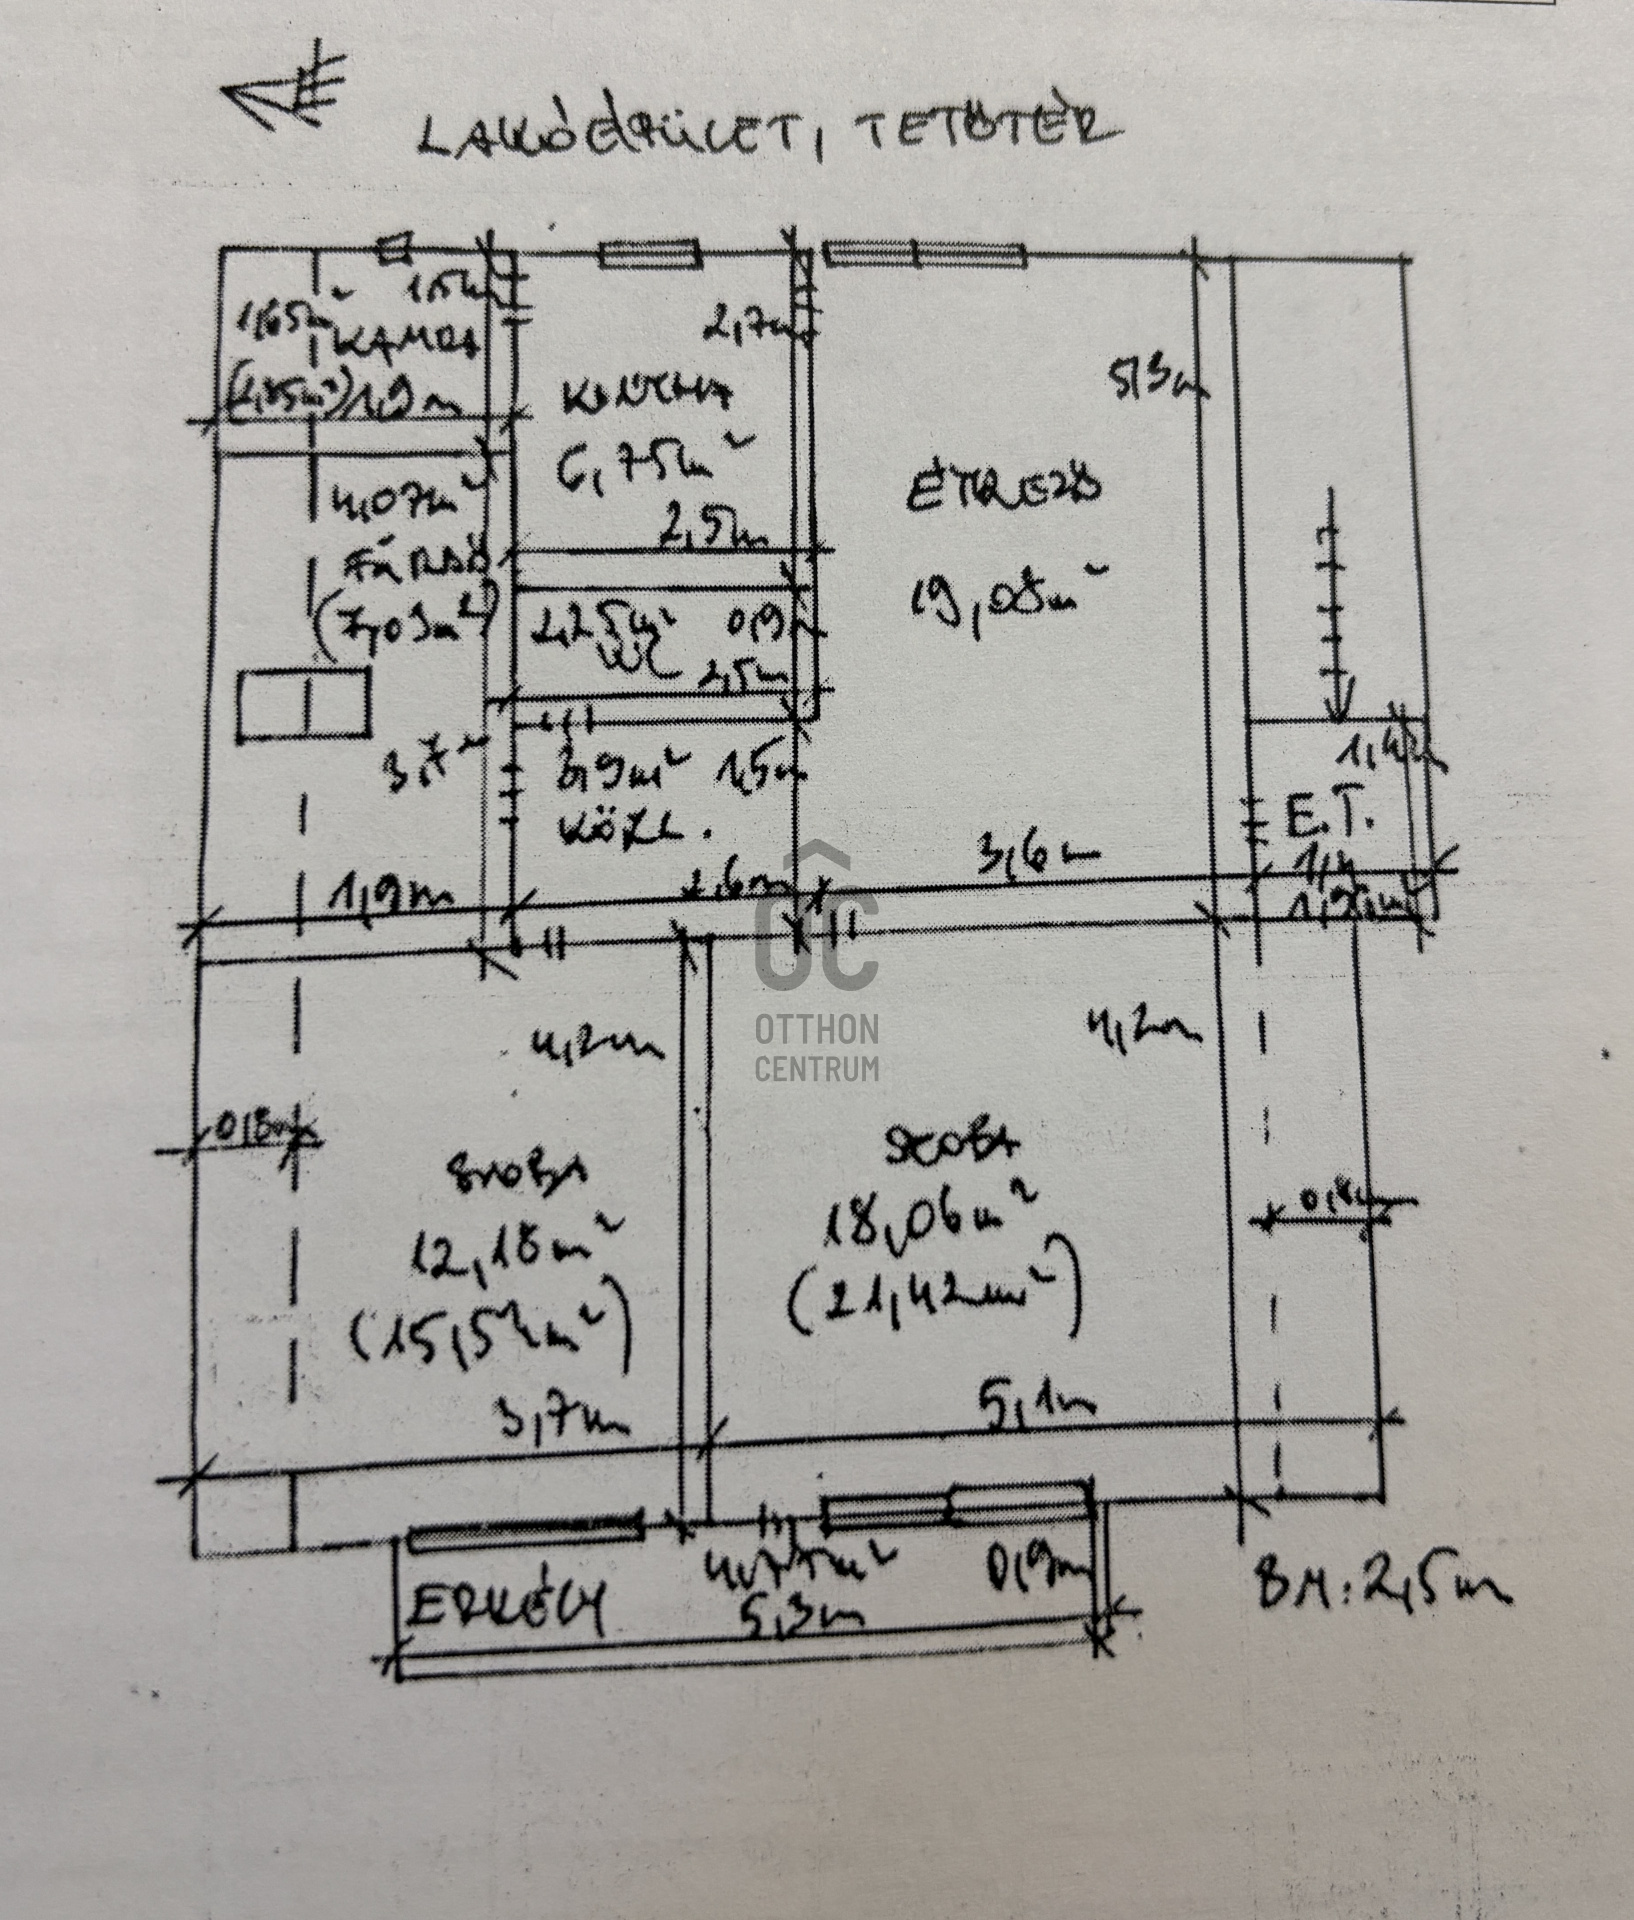 LAKÓÉPÜLET, TETŐTÉR
1,65m²
1,5m
KAMRA
(2,85m²)
1,9m
2,7m
KONYHA
6,75m²
2,5m
5,3m
ÉTKEZŐ
19,08m²
4,07m²
FÜRDŐ
(7,03m²)
2,25m²
0,9m
WC
2,5m
3,7m
3,9m²
1,5m
KÖZL.
1,9m
2,6m
3,6m
E.T.
4,2m
4,2m
OC
OTTHON
CENTRUM
0,8m
SZOBA
12,18m²
(15,54m²)
3,7m
SZOBA
18,06m²
(21,42m²)
0,8m
5,1m
ERKÉLY
4,77m²
5,3m
0,9m
BM: 2,5m